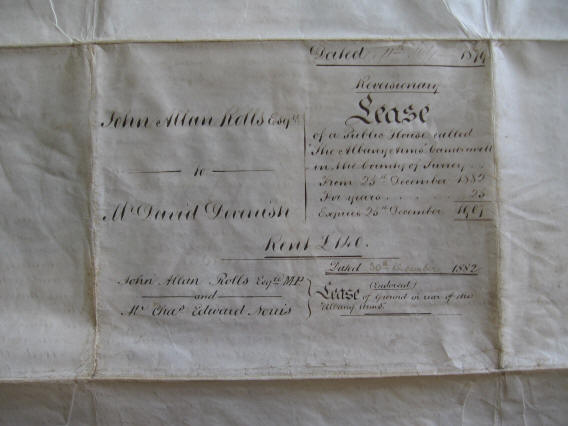 Dated 1879
Reversionary
Lease
of a Public House called
"The Albany Arms" Camberwell
in the County of Surrey
From 25th December 1882
For years 25
Expires 25th December
John Allan Rolls Esqre
to
Mr David Devenish
Rent £140.
Dated 30th 1882
John Allan Rolls Esqre M.P
and
Mr Chas Edward Norris
(Endorsed)
Lease of Ground in rear of the
"Albany Arms"